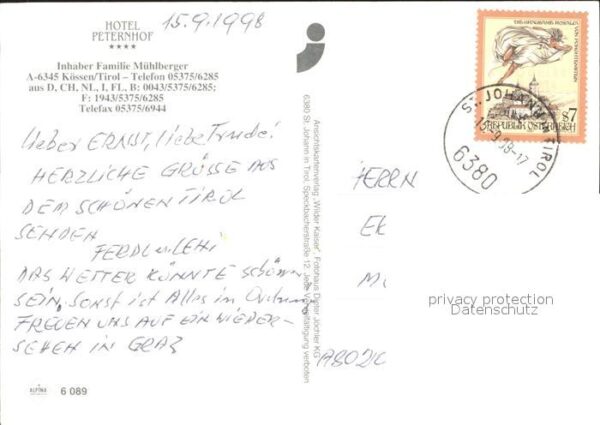 HOTEL
PETERNHOF
★★★★
Inhaber Familie Mühlberger
A-6345 Kössen/Tirol – Telefon 05375/6285
aus D, CH, NL, I, FL, B: 0043/5375/6285;
F: 1943/5375/6285
Telefax 05375/6944
15.9.1998
Lieber ERNST, liebe Trude!
HERZLICHE GRÜSSE AUS
DEM SCHÖNEN TIROL
SENDEN
FERDL u. LEHI
DAS WETTER KÖNNTE schöner
SEIN, SONST ist Alles in Ordnung
FREUEN UNS AUF EIN WIEDER-
SEHEN IN GRAZ
ALPINA
6 089
Ansichtskartenverlag „Wilder Kaiser“, Fotohaus Dieter Jöchler KG
6380 St. Johann in Tirol, Speckbacherstraße 12, Jede Vervielfältigung verboten
REPUBLIK ÖSTERREICH
S7
ST. JOHANN IN TIROL
15.9.98-17
6380
HERRN
privacy protection
Datenschutz
A8020